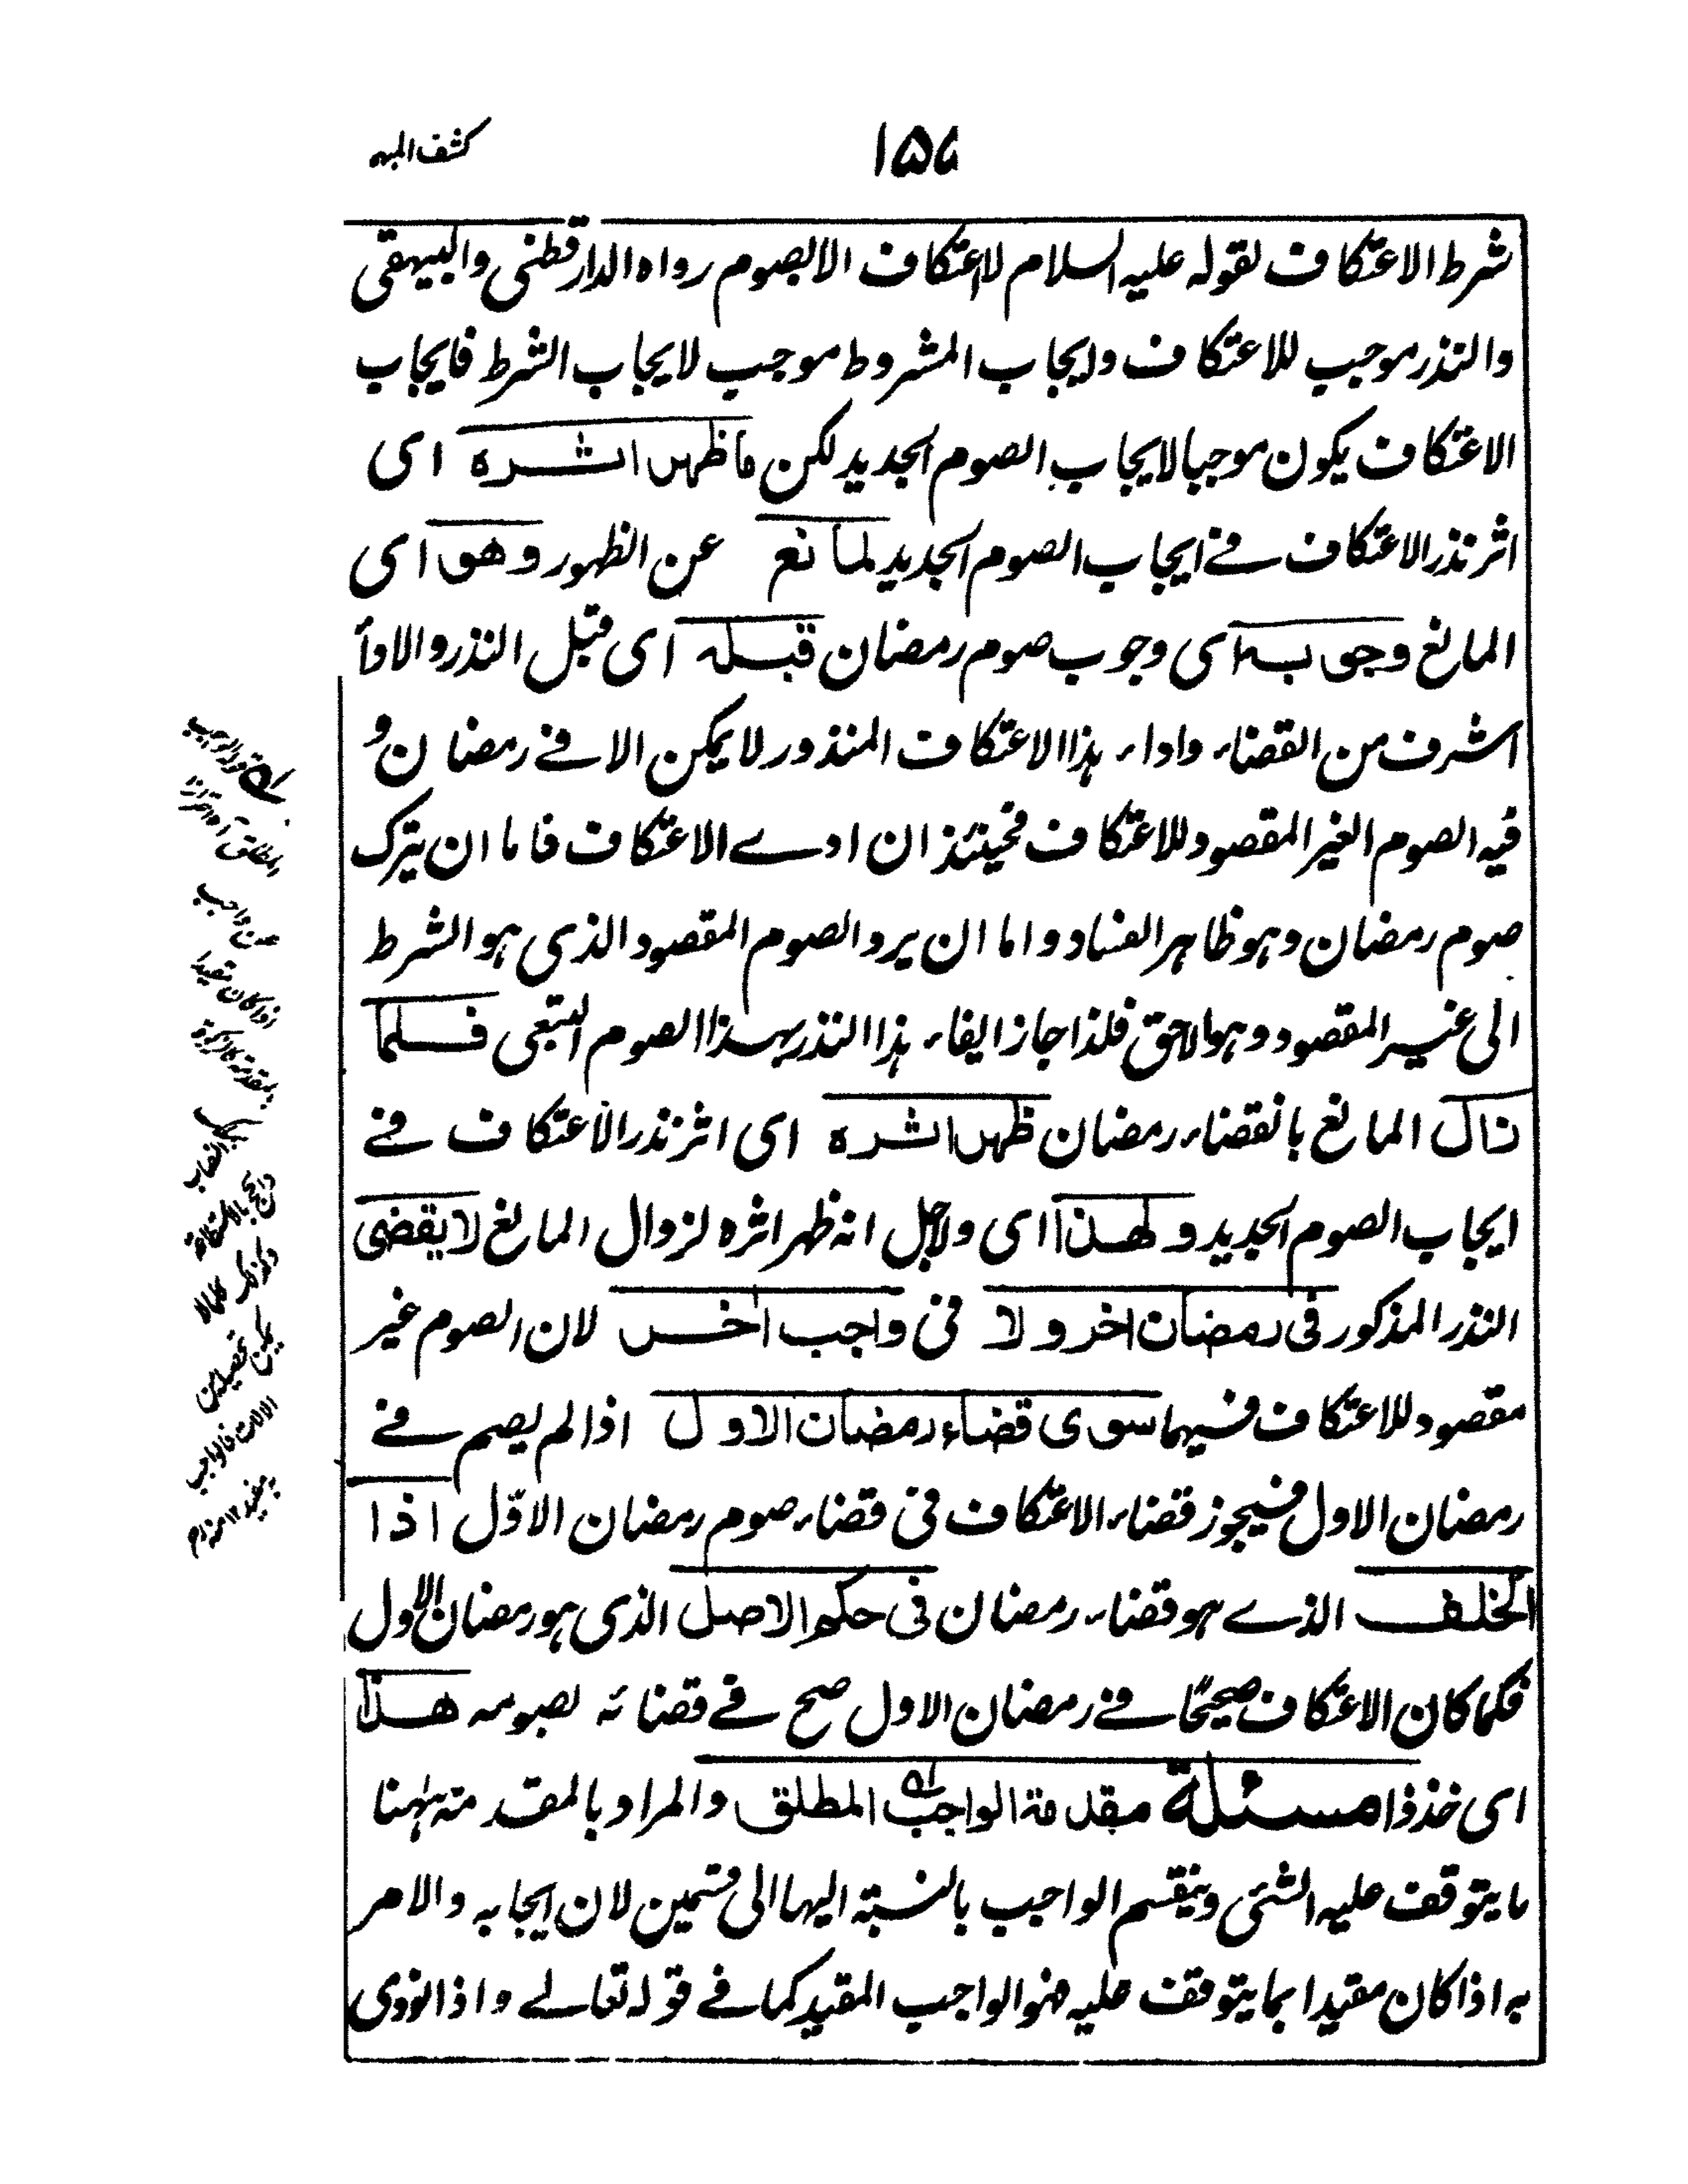 كشف المبهم
۱۵۷
شرط الاعتكاف لقوله عليه السلام لا اعتكاف الا بصوم رواه الدارقطنى والبيهقى
والنذر موجب للاعتكاف وايجاب المشروط موجب لايجاب الشرط فايجاب
الاعتكاف يكون موجبا لايجاب الصوم الجديد لكن ما ظهر اثره اى
اثر نذر الاعتكاف فى ايجاب الصوم الجديد لمانع عن الظهور وهو اى
المانع وجوبه اى وجوب صوم رمضان قبله اى قبل النذر والاداء
اشرف من القضاء واداء هذا الاعتكاف المنذور لا يمكن الا فى رمضان و
فيه الصوم الغير المقصود للاعتكاف فحينئذ ان ادى الاعتكاف فاما ان يترك
صوم رمضان وهو ظاهر الفساد واما ان يرد الصوم المقصود الذى هو الشرط
الى غير المقصود وهو لاحق فلذا جاز ايفاء هذا النذر بهذا الصوم التبعى فلما
زال المانع بانقضاء رمضان ظهر اثره اى اثر نذر الاعتكاف فى
ايجاب الصوم الجديد ولهذا اى ولاجل انه ظهر اثره لزوال المانع لا يقضى
النذر المذكور فى رمضان اخر ولا فى واجب اخر لان الصوم غير
مقصود للاعتكاف فيهما سوى قضاء رمضان الاول اذا لم يصم فى
رمضان الاول فيجوز قضاء الاعتكاف فى قضاء صوم رمضان الاوّل اذا
الخلف الذى هو قضاء رمضان فى حكم الاصل الذى هو رمضان الاول
فكما كان الاعتكاف صحيحًا فى رمضان الاول صح فى قضائه لصومه هذا
اى خذ ذا مسئلة مقدمة الواجب المطلق والمراد بالمقدمة ههنا
ما يتوقف عليه الشئى وينقسم الواجب بالنسبة اليها الى قسمين لان ايجابه والامر
به اذا كان مقيدا بما يتوقف عليه فهو الواجب المقيد كما فى قوله تعالى واذا نودى
قوله الواجب
المطلق
عن واجب
اذا كان مقيدا